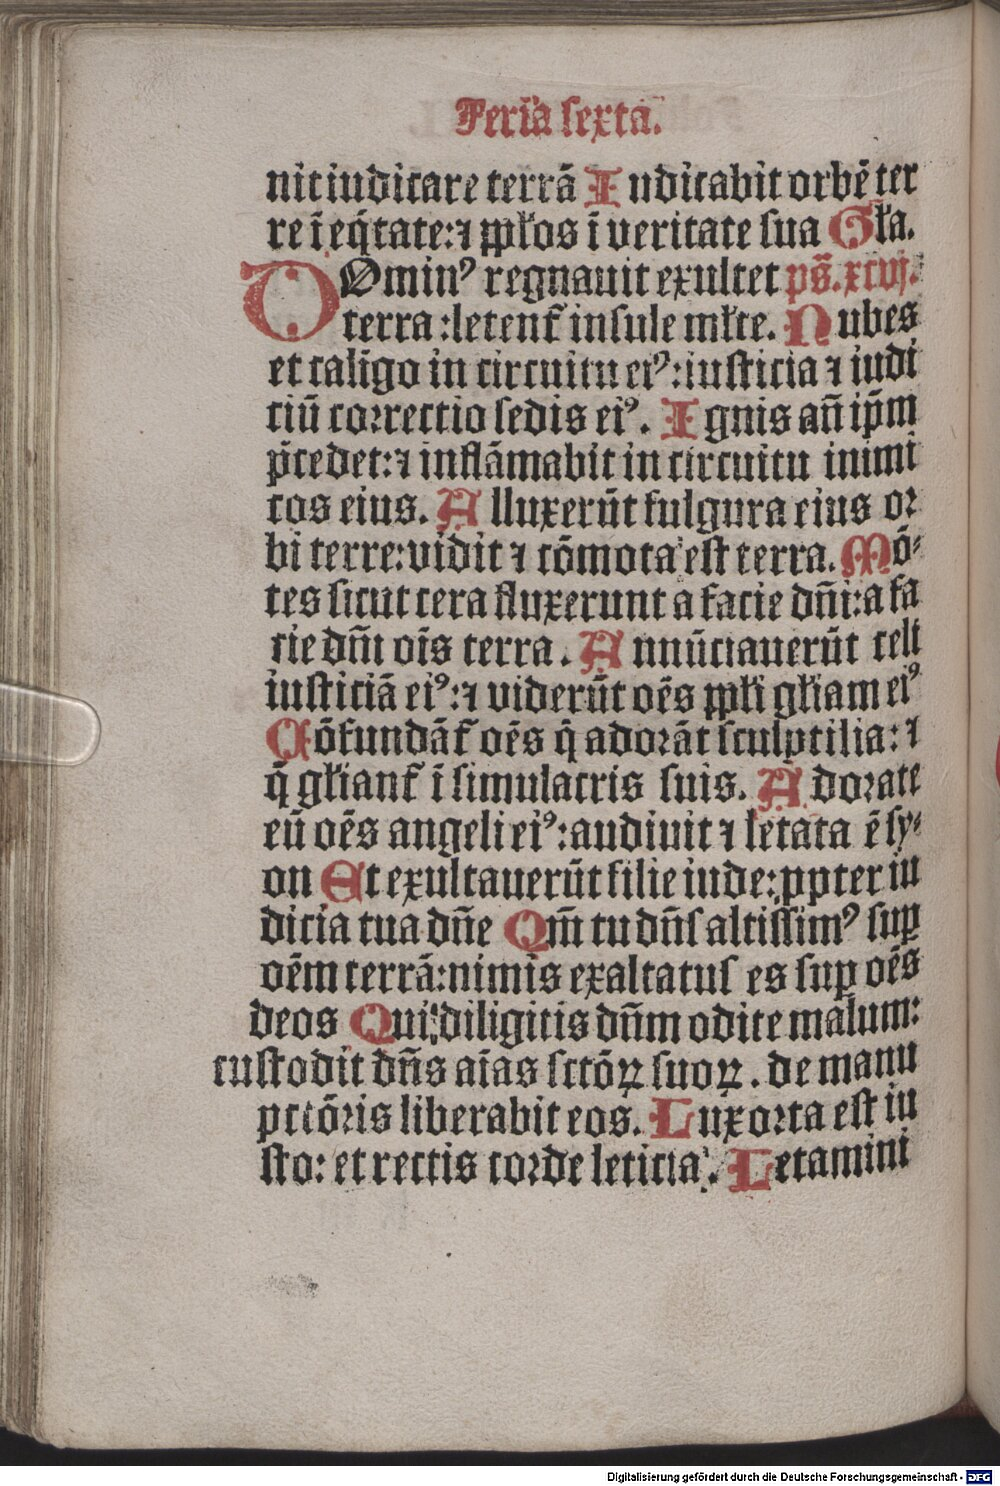 Feria sexta.
nit iudicare terrā Iudicabit orbē ter
re ī eq̄tate:⁊ ppłos ī veritate sua Gła.
DOminꝰ regnauit exultet ps̄. xcvj.
terra :letent᷑ insule młte. Nubes
et caligo in circuitu eiꝰ:iusticia ⁊ iudi
ciū correctio sedis eiꝰ. Ignis an̄ ip̄m
p̄cedet:⁊ inflāmabit in circuitu inimi
cos eius. Alluxerūt fulgura eius or
bi terre:vidit ⁊ cōmota est terra. Mō⸗
tes sicut cera fluxerunt a facie dn̄i:a fa
cie dn̄i oīs terra. Annūciauerūt celi
iusticiā eiꝰ:⁊ viderūt oēs ppłi głiam eiꝰ
Cōfundāt᷑ oēs q̄ adorāt sculptilia:⁊
q̄ głiant᷑ ī simulacris suis. Adorate
eū oēs angeli eiꝰ:audiuit ⁊ letata ē sy⸗
on Et exultauerūt filie iude:ꝓpter iu
dicia tua dn̄e Qm̄ tu dn̄s altissimꝰ suꝑ
oēm terrā:nimis exaltatus es suꝑ oēs
deos Qui diligitis dn̄m odite malum:
custodit dn̄s aīas sctōꝝ suoꝝ. de manu
pctōris liberabit eos. Lux orta est iu
sto: et rectis corde leticia. Letamini
Digitalisierung gefördert durch die Deutsche Forschungsgemeinschaft - DFG